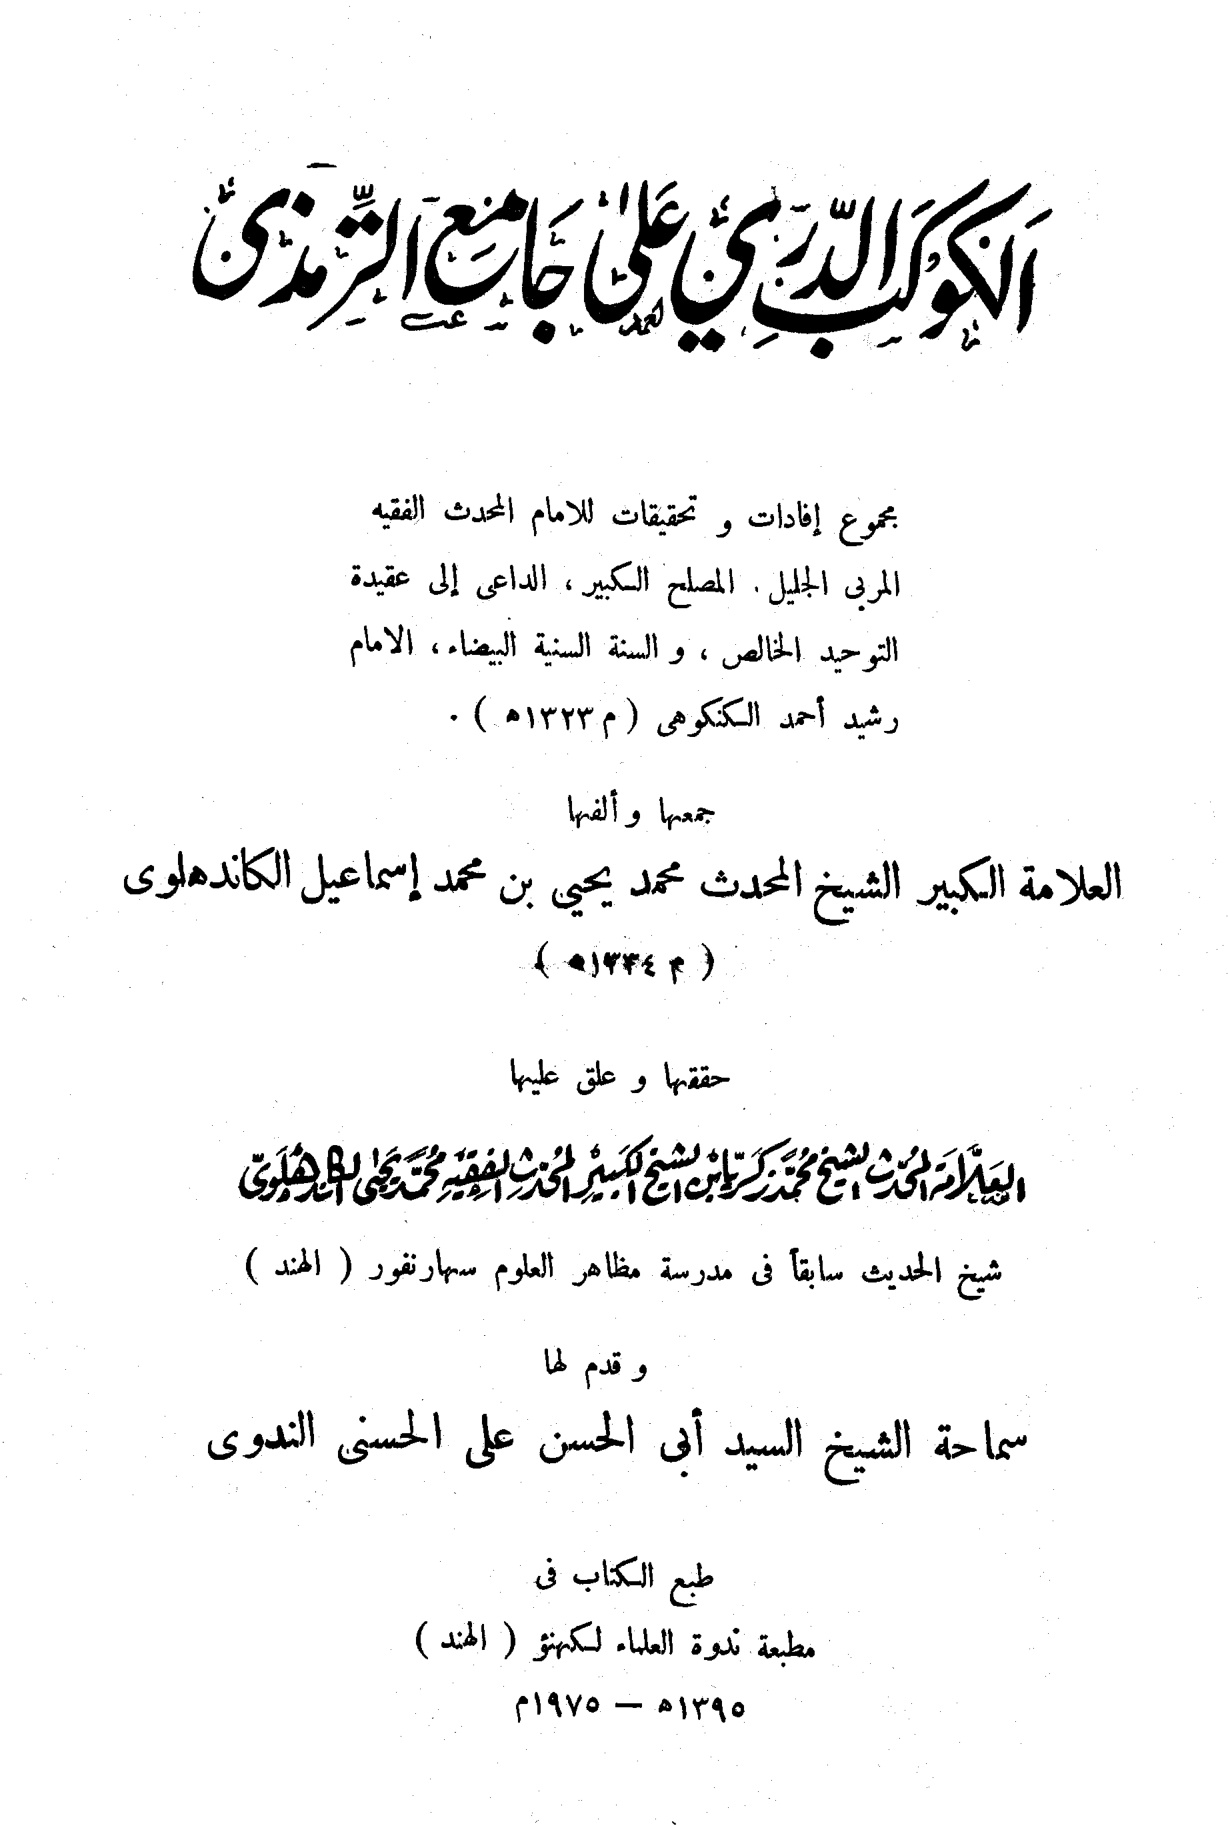 الكَوكَبُ الدُّرِّيُّ عَلىٰ جَامِعِ التِّرمذيّ
مجموع إفادات و تحقيقات للامام المحدث الفقيه
المربى الجليل. المصلح الكبير، الداعى إلى عقيدة
التوحيد الخالص، و السنة السنية البيضاء، الامام
رشيد أحمد الكنكوهى (م ١٣٢٣ﻫ).
جمعها و ألفها
العلامة الكبير الشيخ المحدث محمد يحيي بن محمد إسماعيل الكاندهلوى
(م ١٣٣٤ﻫ)
حققها و علق عليها
العَلَّامَة المُحَدّث الشيخ مُحَمَّد زكَريَّا بْن الشيخ الكَبيْرِ المُحَدّثِ الفقِيْهِ مُحَمَّد يَحْيىٰ الكاندهْلَوِىّ
شيخ الحديث سابقاً فى مدرسة مظاهر العلوم سهارنفور (الهند)
و قدم لها
سماحة الشيخ السيد أبى الحسن على الحسنى الندوى
طبع الكتاب فى
مطبعة ندوة العلماء لكهنؤ (الهند)
١٣٩٥ﻫ — ١٩٧٥م